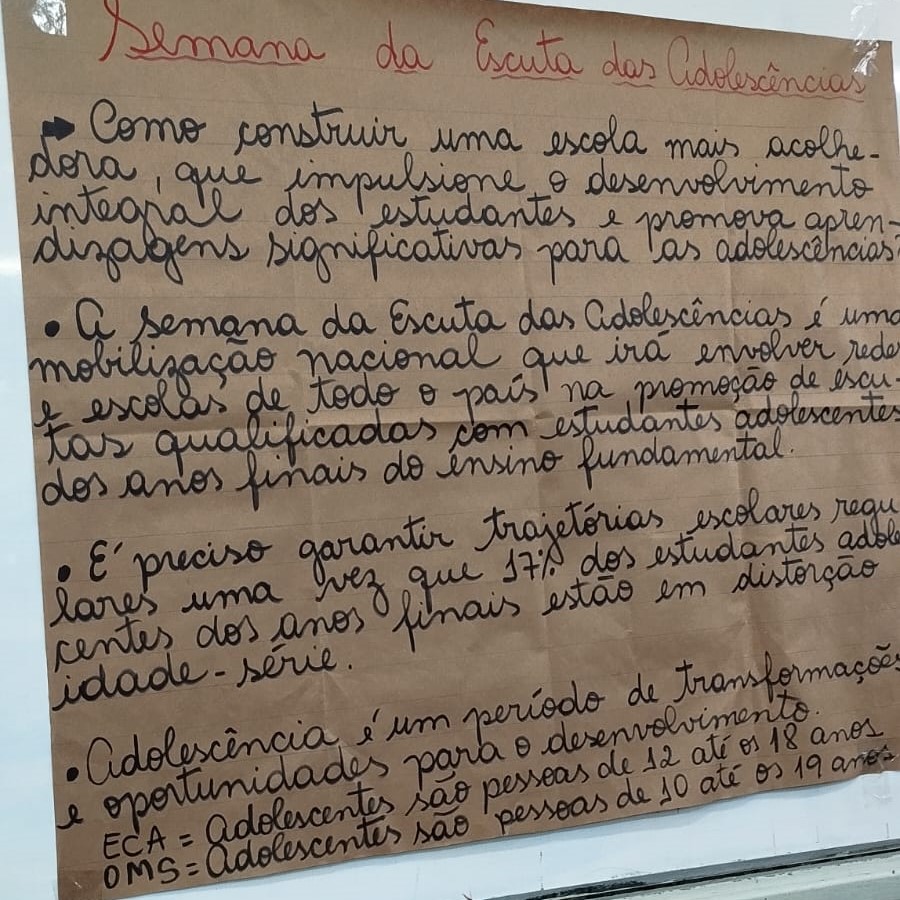 Semana da Escuta das Adolescências
➡ Como construir uma escola mais acolhe-
dora, que impulsione o desenvolvimento
integral dos estudantes e promova apren-
dizagens significativas para as adolescências?
• A semana da Escuta das Adolescências é uma
mobilização nacional que irá envolver redes
e escolas de todo o país na promoção de escu-
tas qualificadas com estudantes adolescentes
dos anos finais do ensino fundamental.
• É preciso garantir trajetórias escolares regu
lares uma vez que 17% dos estudantes adole
centes dos anos finais estão em distorção
idade-série.
• Adolescência é um período de transformações
e oportunidades para o desenvolvimento.
ECA = Adolescentes são pessoas de 12 até os 18 anos
OMS = Adolescentes são pessoas de 10 até os 19 anos